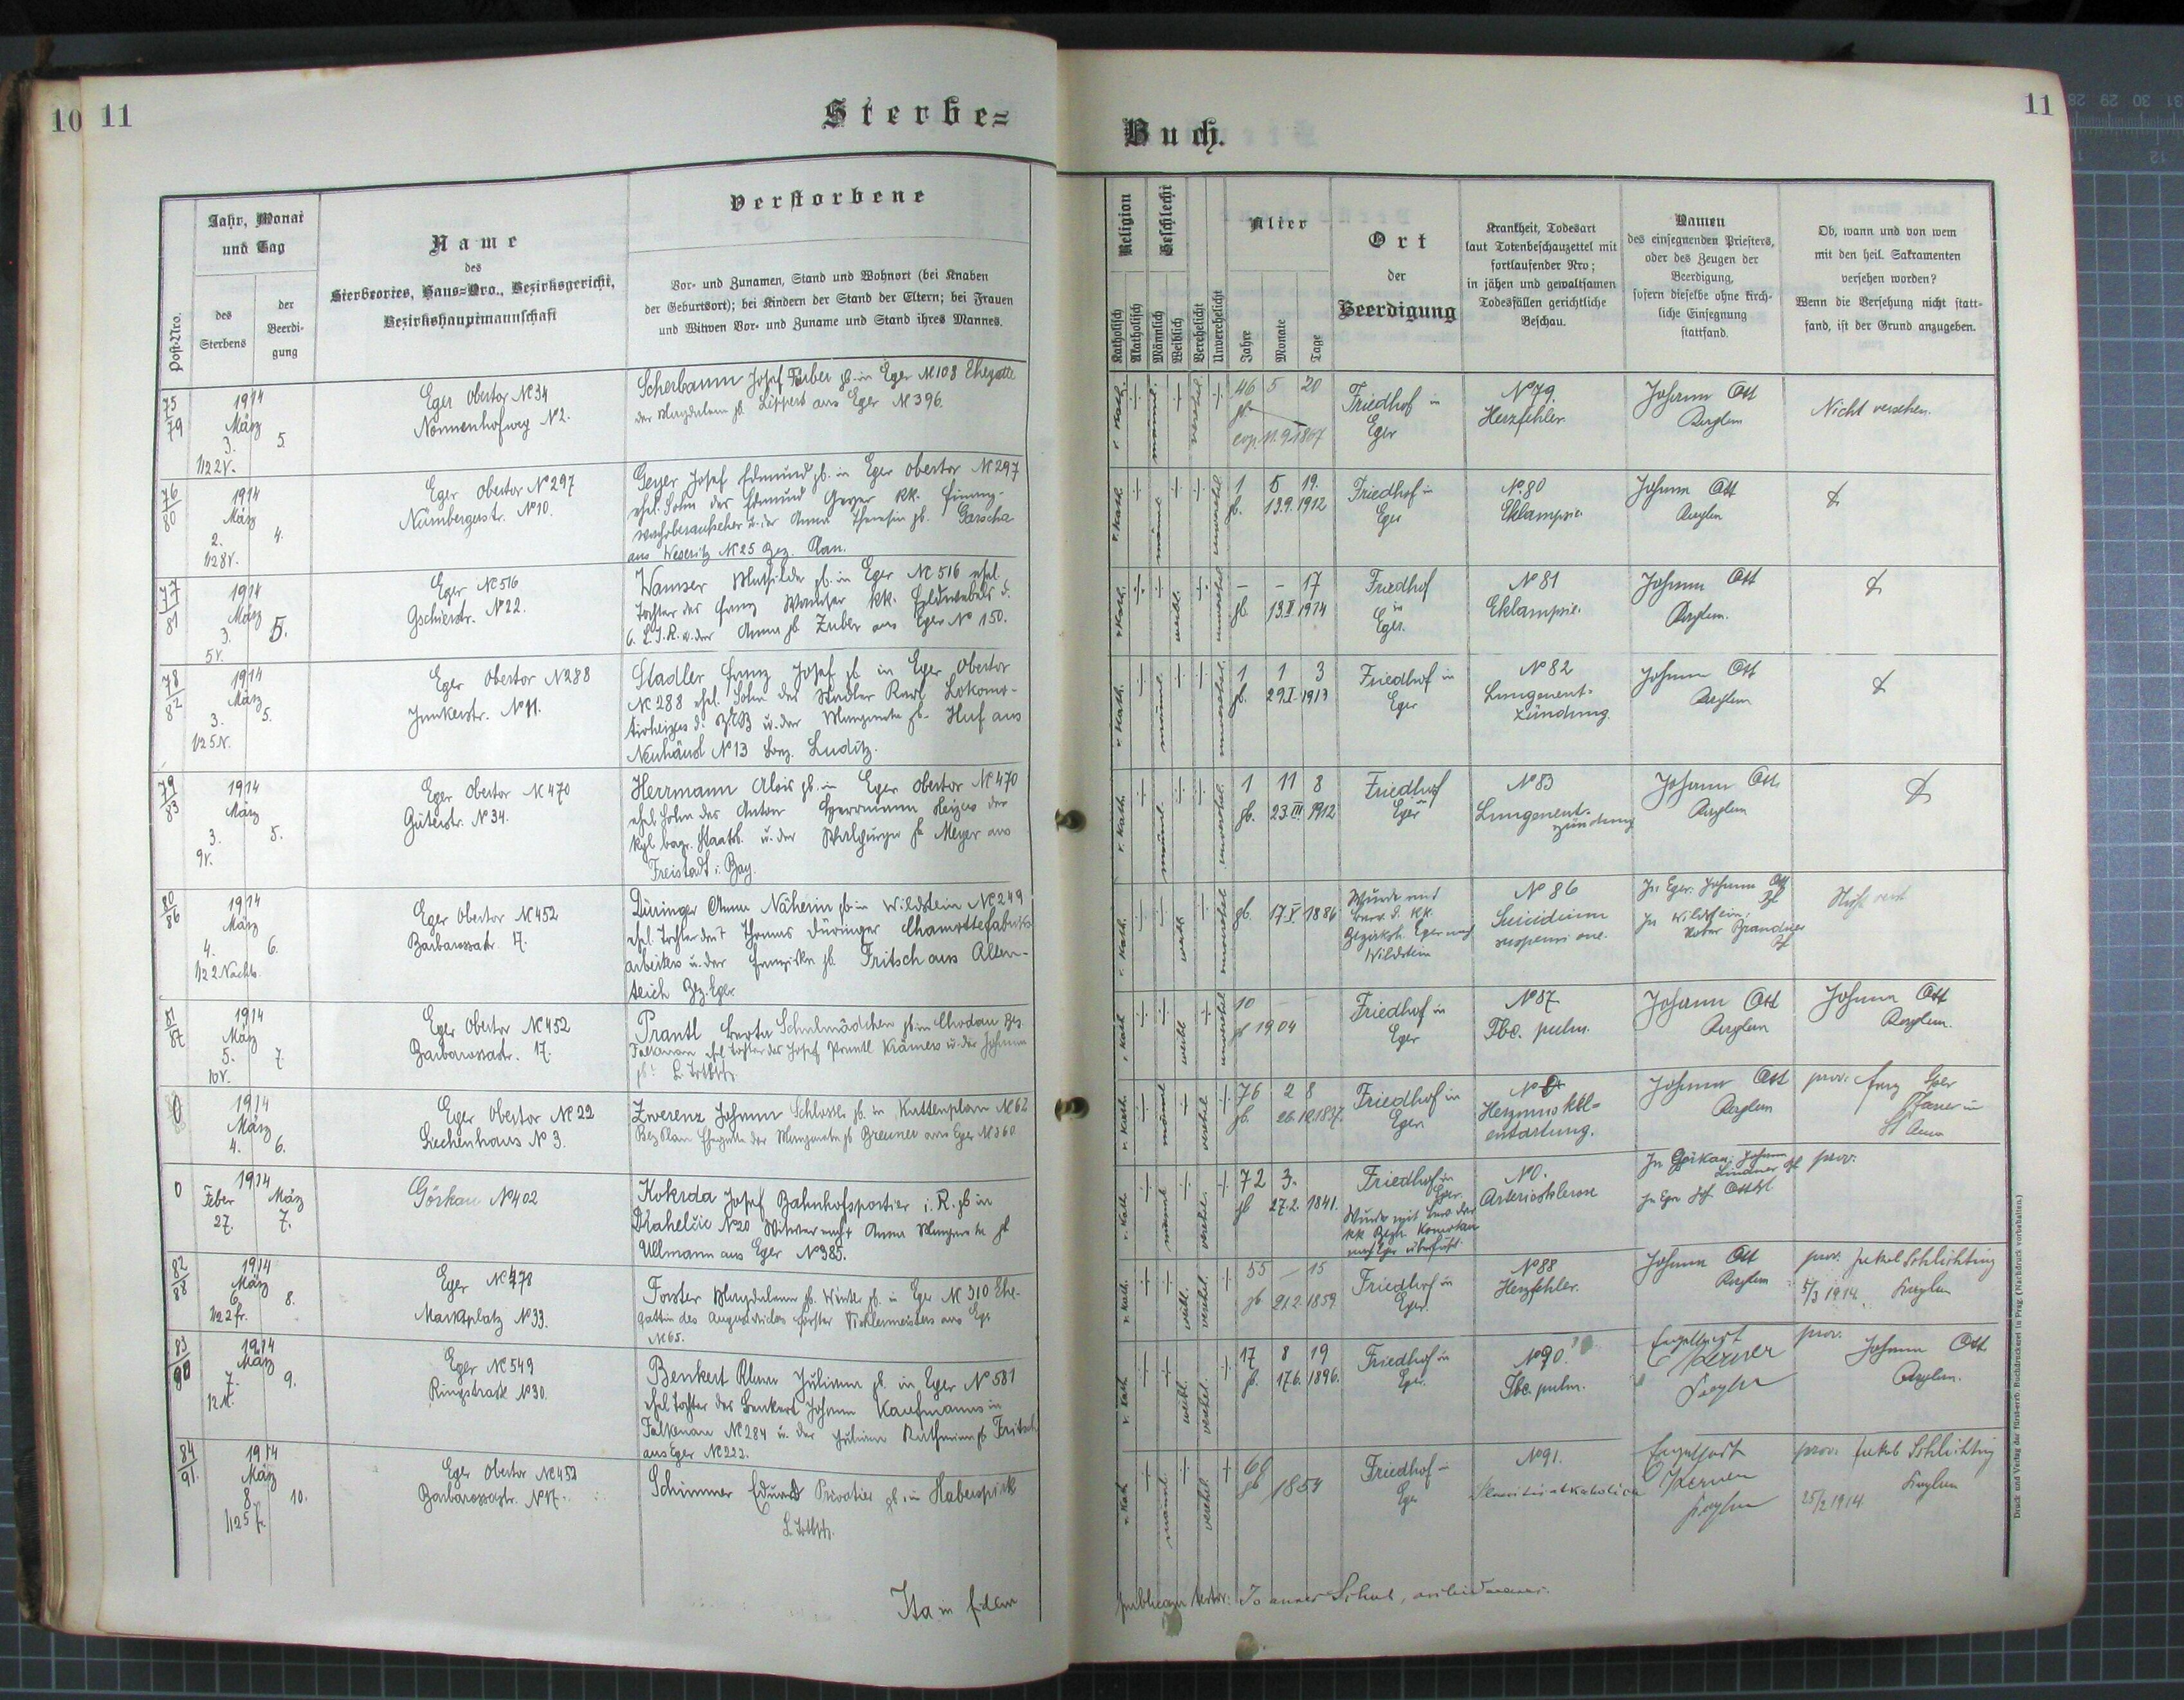 10 11
Sterbe=
Buch.
11
Post-Nro.
Jahr, Monat
und Tag
des
Sterbens
der
Beerdi-
gung
Name
des
Sterbeortes, Haus=Nro., Bezirksgericht,
Bezirkshauptmannschaft
Verstorbene
Vor- und Zunamen, Stand und Wohnort (bei Knaben
der Geburtsort); bei Kindern der Stand der Eltern; bei Frauen
und Witwen Vor- und Zuname und Stand ihres Mannes.
Religion
Katholisch
Akatholisch
Geschlecht
Männlich
Weiblich
Verehelicht
Unverehelicht
Alter
Jahre
Monate
Tage
Ort
der
Beerdigung
Krankheit, Todesart
laut Totenbeschauzettel mit
fortlaufender Nro;
in jähen und gewaltsamen
Todesfällen gerichtliche
Beschau.
Namen
des einsegnenden Priesters,
oder des Zeugen der
Beerdigung,
sofern dieselbe ohne kirch-
liche Einsegnung
stattfand.
Ob, wann und von wem
mit den heil. Sakramenten
versehen worden?
Wenn die Versehung nicht statt-
fand, ist der Grund anzugeben.
75
79
1914
März
3. 5.
1/2 2 V.
Eger Obertor № 34
Nonnenhofweg № 2.
Scherbaum Josef Färber gb. in Eger № 108 Ehegatte
der Magdalena gb. Lippert aus Eger № 396.
r. kath. männl. verehel.
46 5 20
gb.
11.9.1867
Friedhof in
Eger
№ 79.
Herzfehler.
Johann Ott
Nicht versehen.
76
80
1914
März
2. 4.
1/2 8 V.
Eger Obertor № 297
Nürnbergerstr. № 10.
Geyer Josef Edmund gb. in Eger Obertor № 297
ehel. Sohn des Edmund Geyer kk. Finanz-
wachoberaufseher u. der Anna Theresia gb. Garscha
aus Weseritz № 25 Bez. Plan.
r. kath. männl. unverehel.
1 5 19.
gb. 13.9.1912
Friedhof in
Eger
№ 80
Eklampsie.
Johann Ott
77
81
1914
März
3. 5.
5 V.
Eger № 516
Gschierstr. № 22.
Wamser Mathilde gb. in Eger № 516 ehel.
Tochter des Franz Wamser kk. Feldwebels d.
6. L.I.R. u. der Anna gb. Zuber aus Eger № 150.
r. kath. weibl. unverehel.
– – 17
gb. 13.II 1914
Friedhof
in
Eger.
№ 81
Eklampsie.
Johann Ott
78
82
1914
März
3. 5.
1/2 5 N.
Eger Obertor № 288
Junkerstr. № 11.
Stadler Franz Josef gb. in Eger Obertor
№ 288 ehel. Sohn des Stadler Karl Lokomo-
tivheizers d. u. der Margareta gb. Huf aus
Neuhäusl № 13 Bez. Luditz.
r. kath. männl. unverehel.
1 1 3
gb. 29.I.1913
Friedhof in
Eger
№ 82
Lungenent-
zündung.
Johann Ott
79
83
1914
März
3. 5.
9 V.
Eger Obertor № 470
Güterstr. № 34.
Herrmann Alois gb. in Eger Obertor № 470
ehel. Sohn des Anton Herrmann Heizers der
kgl. bayr. Staatsb. u. der Walburga gb. Meyer aus
Freistadt i. Bay.
r. kath. männl. unverehel.
1 11 8
gb. 23.III 1912
Friedhof
in
Eger
№ 83
Lungenent-
zündung
Johann Ott
80
86
1914
März
4. 6.
1/2 2 Nachts.
Eger Obertor № 452
Barbarossastr. 17.
Düringer Anna Näherin gb. in Wildstein № 249
ehel. Tochter des † Thomas Düringer Chamottefabriks
arbeiters u. der Franziska gb. Fritsch aus Alten-
teich Bez. Eger
r. kath. weibl. unverehel.
gb. 17.V 1886
Wurde mit
Bew. d. kk.
Bezirksh. Eger nach
Wildstein
№ 86
Suicidium
In Eger: Johann Ott
In Wildstein:
81
87
1914
März
5. 7.
10 V.
Eger Obertor № 452
Barbarossastr. 17.
Prantl Berta Schulmädchen gb. in Chodau Bez.
Falkenau ehel. Tochter des Josef Prantl Krämers u. der Johanna
r. kath. weibl. unverehel.
10
gb. 1904
Friedhof in
Eger
№ 87
Tbc. pulm.
Johann Ott
Johann Ott
0
1914
März
4. 6.
Eger Obertor № 22
Siechenhaus № 3.
Zwerenz Johann Schlosser gb. in Kuttenplan № 62
Bez. Plan Ehegatte der Margareta gb. Greiner aus Eger № 360
r. kath. männl. verehel.
76 2 8
gb. 26.12.1837.
Friedhof in
Eger.
№ 0
Herzmuskel=
entartung.
Johann Ott
prov.
Pfarrer in
St Anna
0
1914
Feber März
27. 7.
Görkau № 402
Kokrda Josef Bahnhofsportier i. R. gb. in
Drahelčic № 20 Witwer nach † Anna Margareta gb.
Ullmann aus Eger № 385.
r. kath. männl. verehel.
72 3.
gb. 27.2. 1841.
Friedhof in
Eger.
Wurde mit Bew. der
kk Bezh. Komotau
nach Eger überführt.
№ 0.
Arteriosklerose
In Görkau: Johann
Lindner
prov.
82
88
1914
März
6. 8.
1/2 2 fr.
Eger № 478
Marktplatz № 33.
Forster Magdalena gb. Winter gb. in Eger № 310 Ehe-
gattin des Forster Tischlermeisters aus Eger
№ 65.
r. kath. weibl. verehel.
55 – 15
gb. 21.2.1859.
Friedhof in
Eger.
№ 88
Herzfehler.
Johann Ott
prov. Jakob Schlichting
5/3 1914. Kaplan
83
90
1914
März
7. 9.
12 M.
Eger № 549
Ringstrasse № 30.
Benkert Klara Juliana gb. in Eger № 581
ehel. Tochter des Benkert Johann Kaufmanns in
Falkenau № 284 u. der Juliana Katharina gb. Fritsch
aus Eger № 222.
r. kath. weibl. verehel.
17 8 19
gb. 17.6. 1896.
Friedhof in
Eger.
№ 90.
Tbc. pulm.
Engelbert
Kerner
Kaplan
prov.
Johann Ott
84
91.
1914
März
8. 10.
1/2 5 fr.
Eger Obertor № 452
Barbarossastr. № 17.
Schimmer Eduard Privatier gb. in Haberspirk
r. kath. männl. verehel.
60
gb. 1854
Friedhof in
Eger
№ 91.
Engelbert
Kerner
Kaplan
prov. Jakob Schlichting
25/2 1914. Kaplan
Ita in fidem
Druck und Verlag der fürst-erzb. Buchdruckerei in Prag. (Nachdruck vorbehalten.)